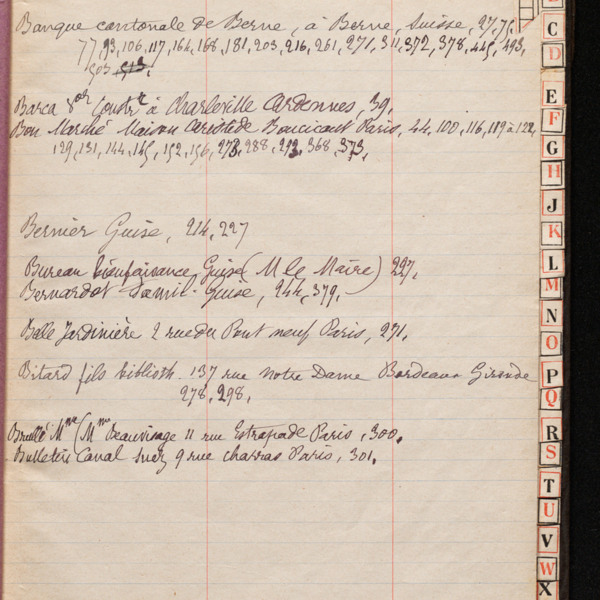 Banque cantonale de Berne, à Berne, Suisse, 27, 75,
77, 93, 106, 117, 164, 168, 181, 203, 216, 261, 271, 311, 372, 378, 445, 493,
503, 513,
Barca à Charleville Ardennes, 39,
Bon Marché Maison Aristide Boucicaut Paris, 44, 100, 116, 119 à 122,
129, 131, 144, 145, 152, 156, 273, 288, 293, 368, 373,
Bernier Guise, 214, 227
Bureau bienfaisance Guise (M le Maire) 227,
Bernardot Guise, 244, 379,
Belle Jardinière 2 rue du Pont neuf Paris, 271,
Bitard fils biblioth. 137 rue Notre Dame Bordeaux Gironde
278, 298,
Brullé Mme (Mme Beauvisage 11 rue Estrapade Paris, 300,
Bulletin Canal Suez 9 rue charras Paris, 301,
C
D
E
F
G
H
J
K
L
M
N
O
P
Q
R
S
T
U
V
W
X